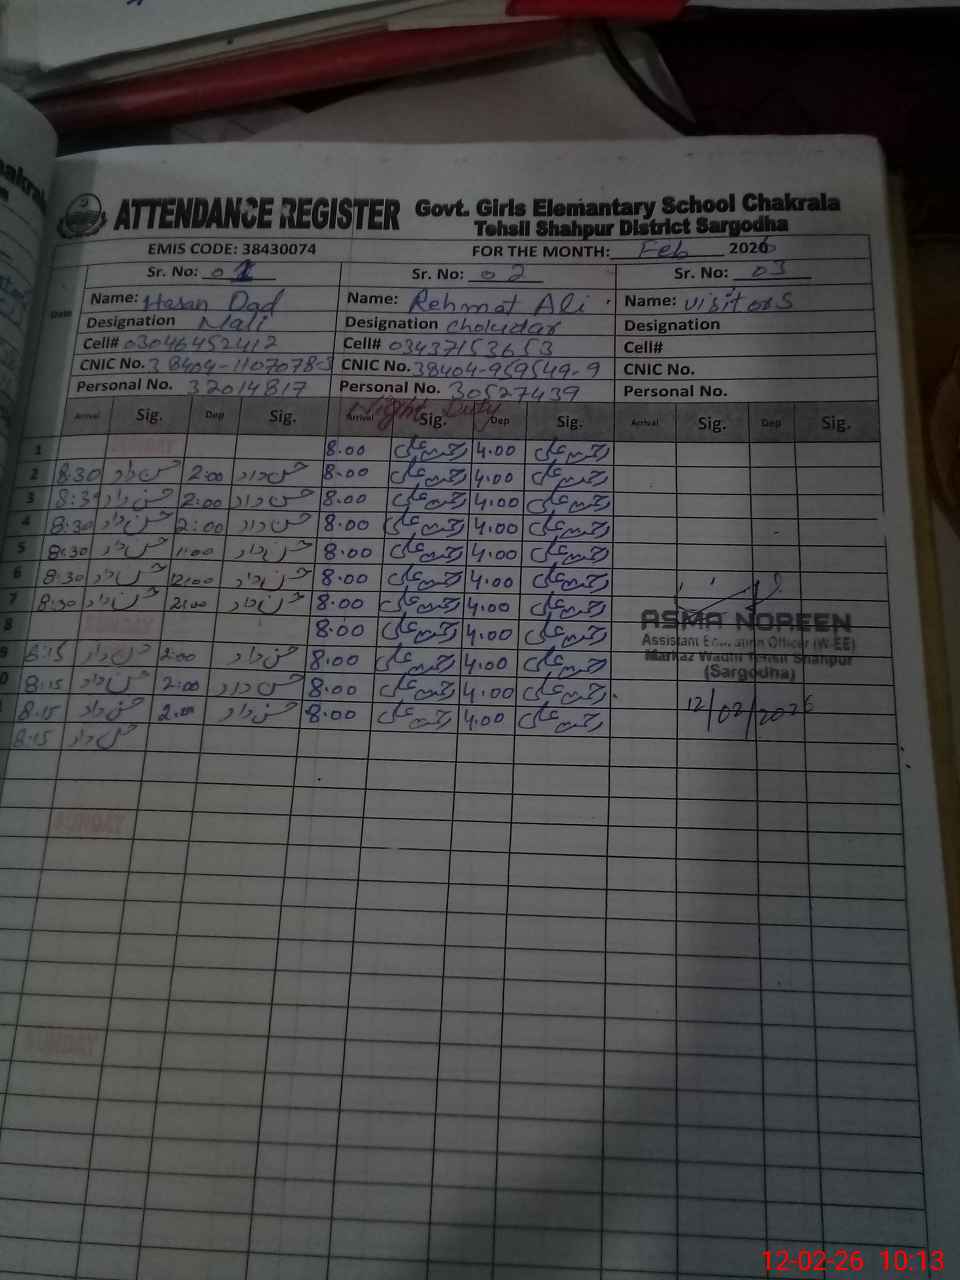 ATTENDANCE REGISTER Govt. Girls Elemantary School Chakrala
Tehsil Shahpur District Sargodha
EMIS CODE: 38430074 FOR THE MONTH: Feb 2026
Sr. No: 01 Sr. No: 02 Sr. No: 03
Date
Name: Hasan Dad Name: Rehmat Ali Name: visitors
Designation Mali Designation Chokidar Designation
Cell# 03046452412 Cell# 03437153653 Cell#
CNIC No. 38404-1107078-3 CNIC No. 38404-959549-9 CNIC No.
Personal No. 32014817 Personal No. 30527439 Personal No.
Night Duty
Arrival Sig. Dep Sig. Arrival Sig. Dep Sig. Arrival Sig. Dep Sig.
1 8.00 رحمت علی 4.00 رحمت علی
2 8:30 حسن داد 2:00 حسن داد 8.00 رحمت علی 4.00 رحمت علی
3 8:30 حسن داد 2:00 حسن داد 8.00 رحمت علی 4.00 رحمت علی
4 8:30 حسن داد 2:00 حسن داد 8.00 رحمت علی 4.00 رحمت علی
5 8:30 حسن داد 1:00 حسن داد 8.00 رحمت علی 4.00 رحمت علی
6 8:30 حسن داد 12:00 حسن داد 8.00 رحمت علی 4.00 رحمت علی
7 8:30 حسن داد 2:00 حسن داد 8.00 رحمت علی 4.00 رحمت علی
8 8.00 رحمت علی 4.00 رحمت علی
9 8:15 حسن داد 2:00 حسن داد 8.00 رحمت علی 4.00 رحمت علی
0 8:15 حسن داد 2:00 حسن داد 8.00 رحمت علی 4.00 رحمت علی
8.15 حسن داد 2.00 حسن داد 8.00 رحمت علی 4.00 رحمت علی
8:15 حسن داد
ASMA NOREEN
Assistant Education Officer (W-EE)
Markaz Wadhi Tehsil Shahpur
(Sargodha)
12/02/2026
12-02-26 10:13